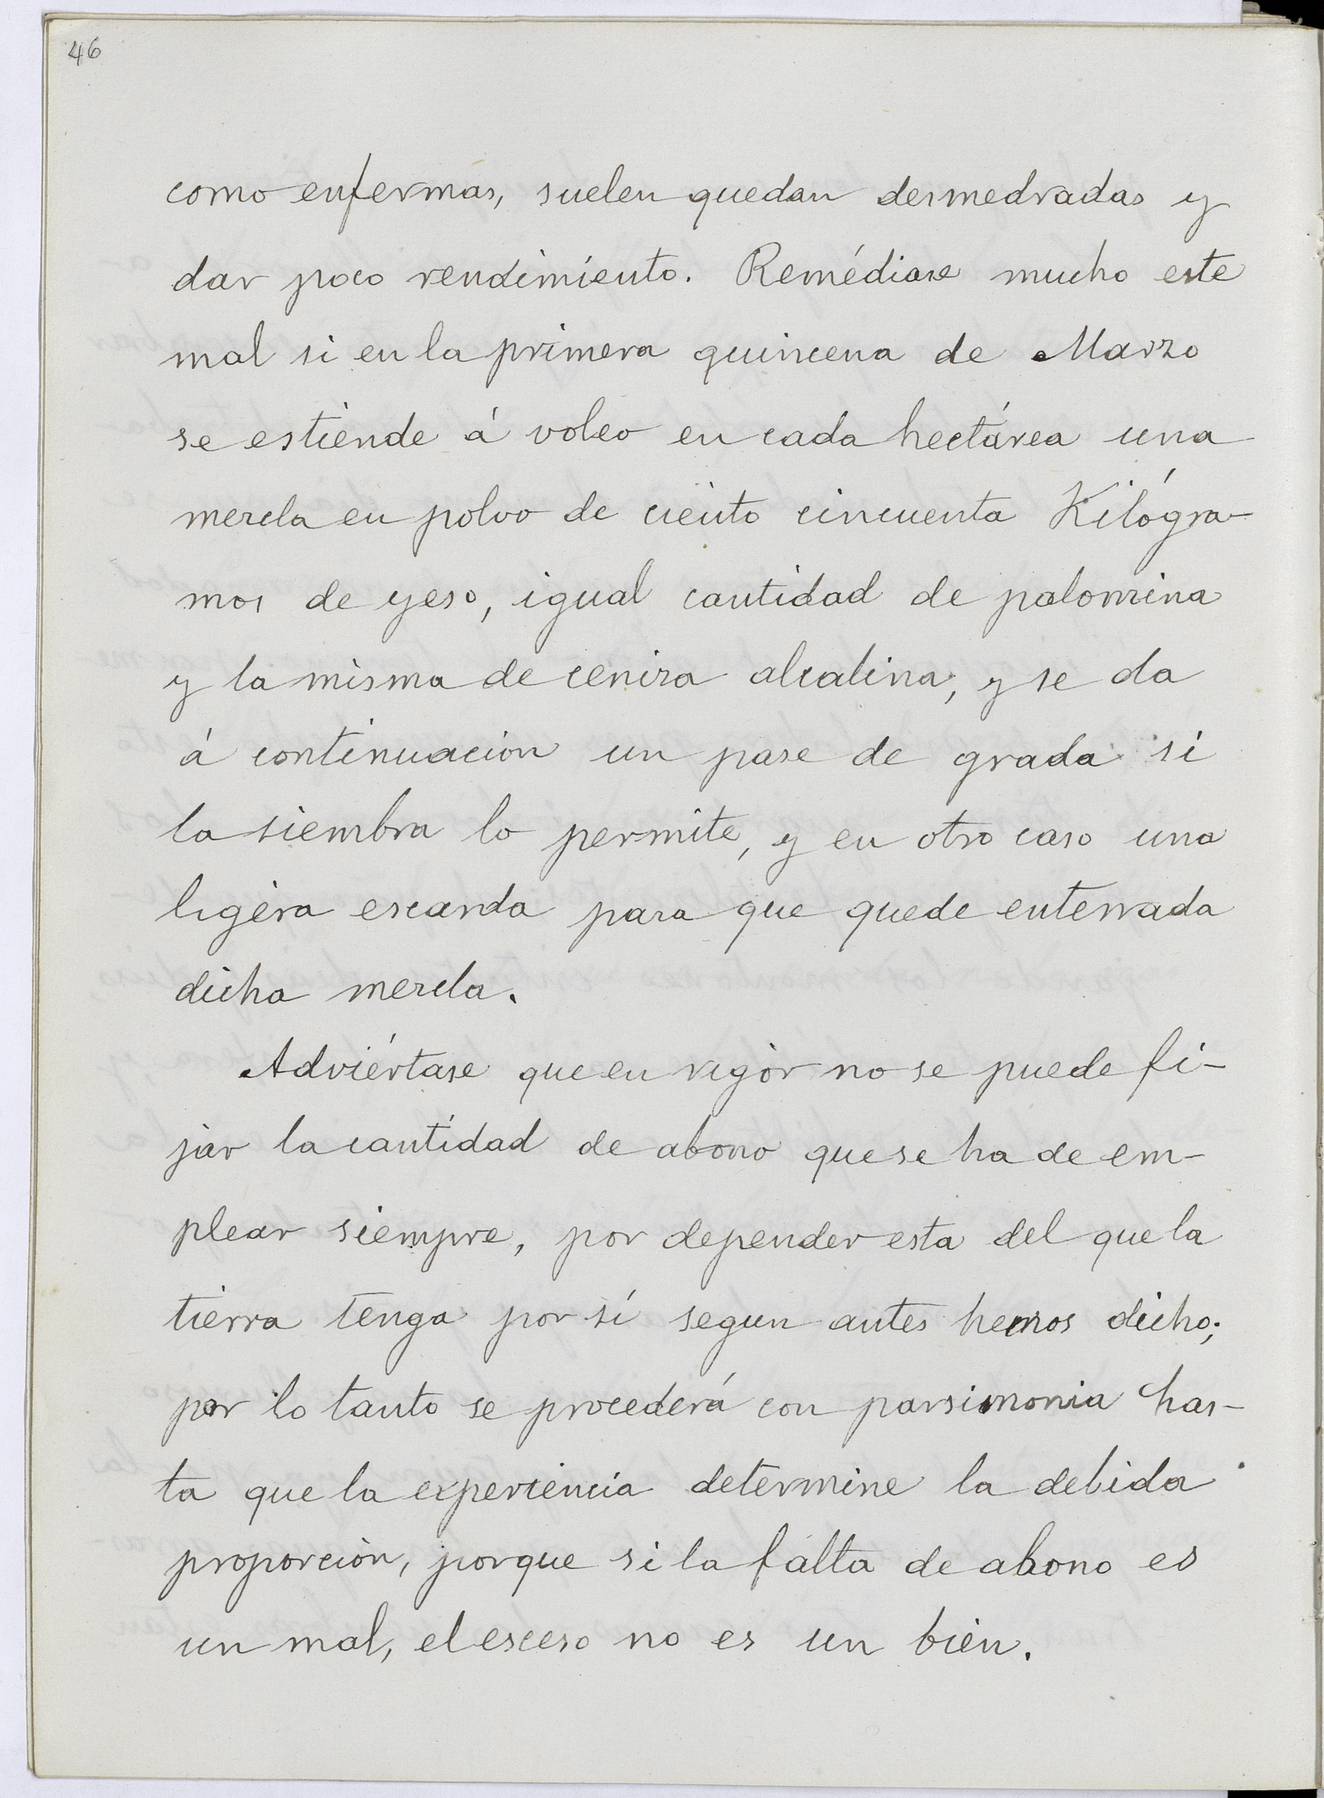 46
como enfermas, suelen quedan desmedradas y
dar poco rendimiento. Remédiase mucho este
mal si en la primera quincena de Marzo
se estiende á voleo en cada hectárea una
mezcla en polvo de ciento cincuenta Kilógra-
mos de yeso, igual cantidad de palomina
y la misma de ceniza alcalina, y se da
á continuación un pase de grada si
la siembra lo permite, y en otro caso una
ligera escarda para que quede enterrada
dicha mezcla.
Adviértase que en rigor no se puede fi-
jar la cantidad de abono que se ha de em-
plear siempre, por depender esta del que la
tierra tenga por sí segun antes hemos dicho;
por lo tanto se procederá con parsimonia has-
ta que la experiencia determine la debida
proporción, porque si la falta de abono es
un mal, el esceso no es un bien.